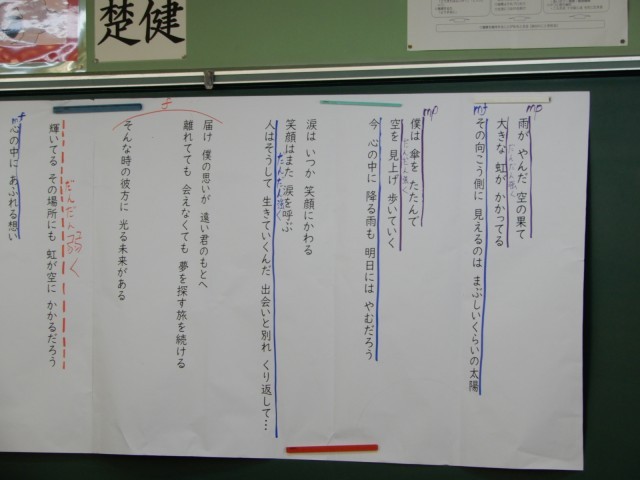 健
楚
mp
雨が やんだ 空の果て
だんだん強く
大きな 虹が かかってる
mf
その向こう側に 見えるのは まぶしいくらいの太陽
mp
僕は 傘を たたんで
だんだん強く
空を 見上げ 歩いていく
今 心の中に 降る雨も 明日には やむだろう
涙は いつか 笑顔にかわる
笑顔はまた 涙を呼ぶ
だんだん強く
人はそうして 生きていくんだ 出会いと別れ くり返して…
f
届け 僕の思いが 遠い君のもとへ
離れてても 会えなくても 夢を探す旅を続ける
そんな時の彼方に 光る未来がある
だんだん弱く
輝いてる その場所にも 虹が空に かかるだろう
mf
心の中に あふれる想い